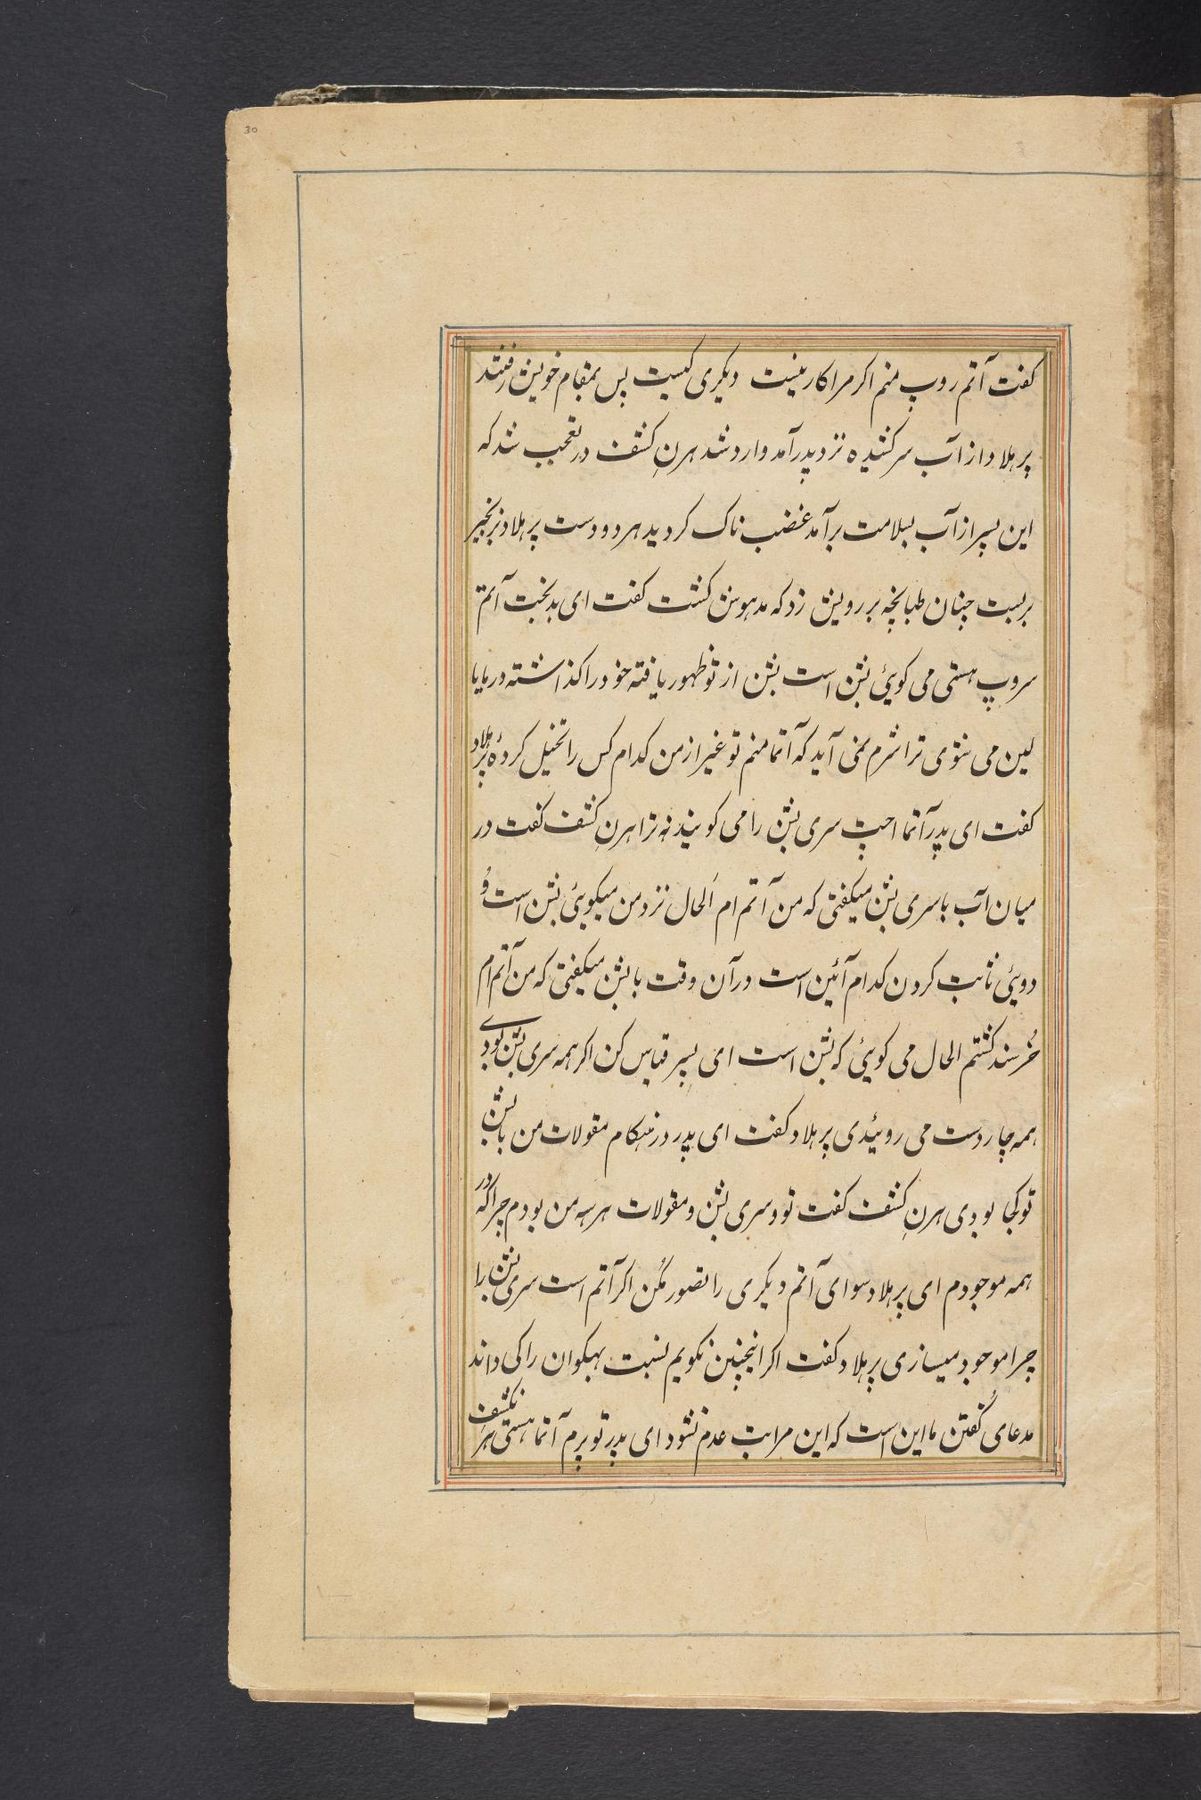 30
کفت آتم روپ منم اکر مرا کار نیست دیکری کیست پس بمقام خویش رفتند
پرهلاد از آب سر کشیده نزد پدر آمد وارد شد هرن کشف در تعجب شد که
این پسر از آب بسلامت برآمد غضب ناک کردید هر دو دست پرهلاد بزنجیر
بربست چنان طبانچه بر رویش زد که مدهوش کشت کفت ای بدبخت آتم
سروپ هستی می کویئ بشن است بشن از تو ظهور یافته خود را کذاشته در مایا
لین می شوی ترا شرم نمی آید که آتما منم تو غیر از من کدام کس را تخیل کردهٔ پرهلاد
کفت ای پدر آتما اچپ سری بشن را می کویند نه ترا هرن کشف کفت در
میان آب با سری بشن میکفتی که من آتم ام الحال نزد من میکویئ بشن است و
دویئ ثابت کردن کدام آئین است در آن وقت با بشن میکفتی که من آتم ام
خُرسند کشتم الحال می کویئ که بشن است ای پسر قیاس کن اکر همه سری بشن بودی
همه چار دست می روئیدی پرهلاد کفت ای پدر در هنکام مقولات من با بشن
تو کجا بودی هرن کشف کفت تو و سری بشن و مقولات هر سه من بودم چرا که در
همه موجودم ای پرهلاد سوای آتم دیکری را تصور مکُن اکر آتم است سری بشن را
چرا موجود میسازی پرهلاد کفت اکر اینچنین نکویم نسبت بهکوان را کی داند
مدعای کُفتن ما این است که این مراتب عدم نشود ای پدر تو پرم آتما هستی هرنکشف